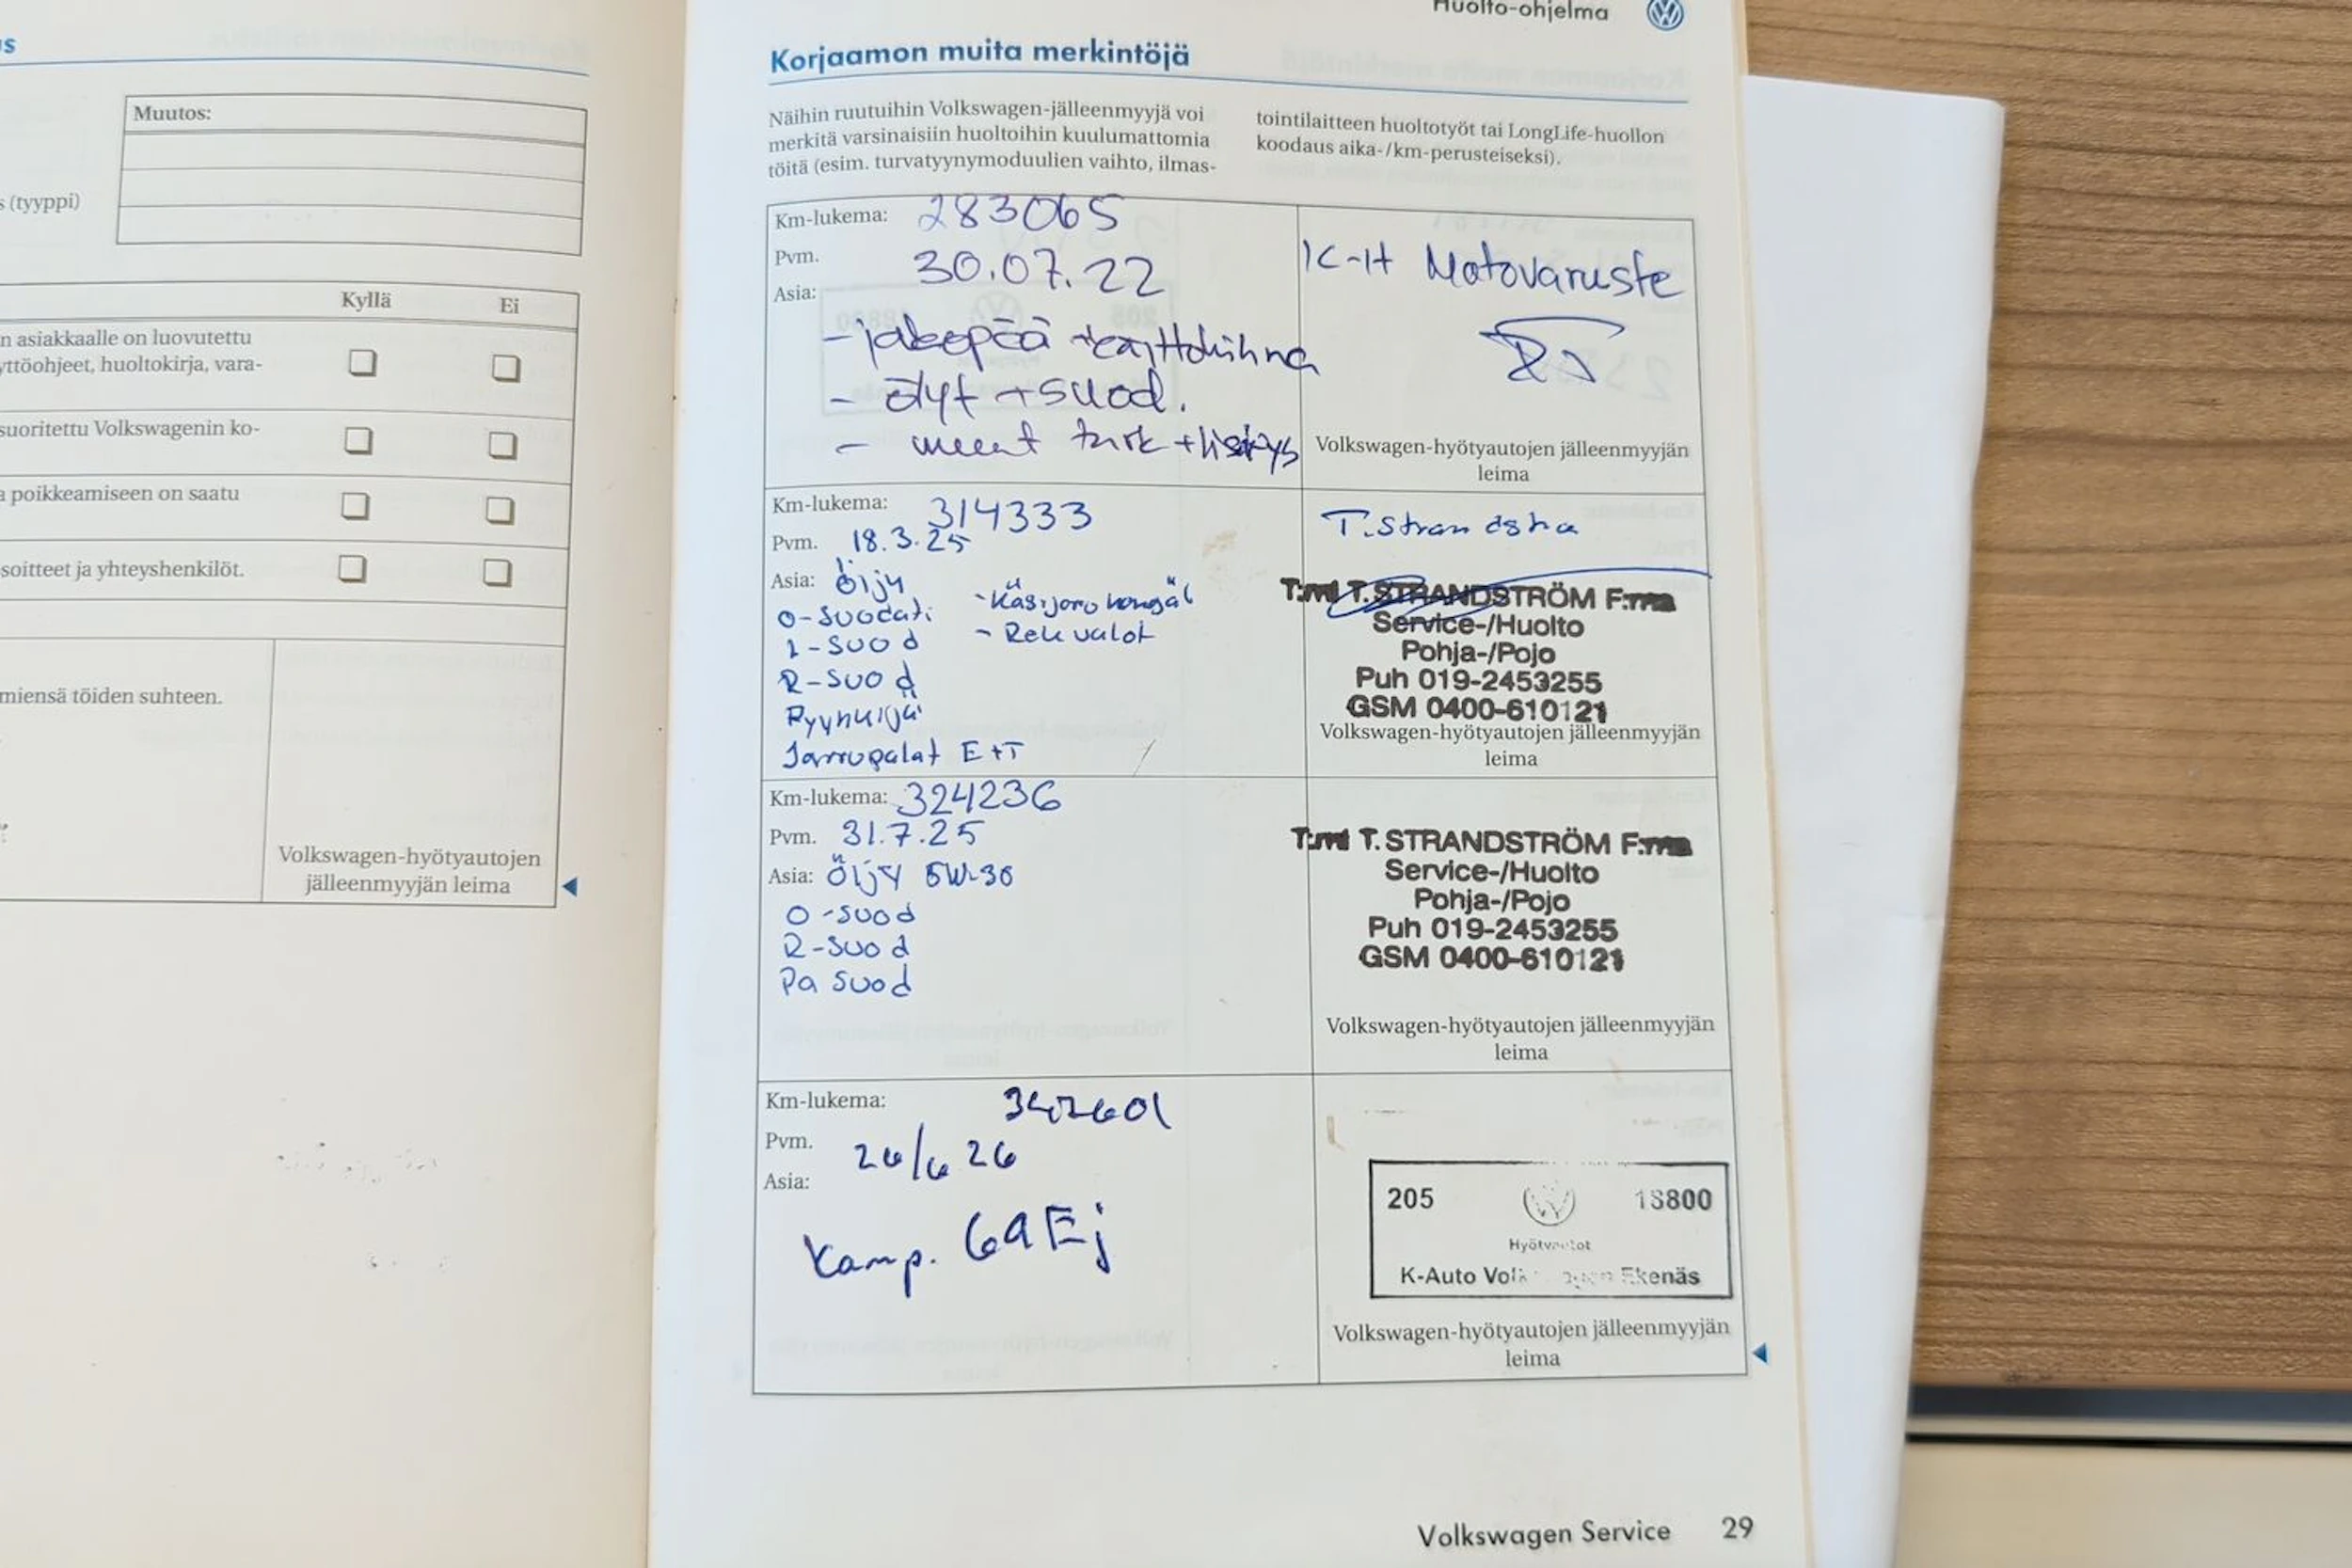 s
Muutos:
s (tyyppi)
Kyllä
Ei
n asiakkaalle on luovutettu
yttöohjeet, huoltokirja, vara-
suoritettu Volkswagenin ko-
a poikkeamiseen on saatu
soitteet ja yhteyshenkilöt.
miensä töiden suhteen.
Volkswagen-hyötyautojen
jälleenmyyjän leima
Huolto-ohjelma
Korjaamon muita merkintöjä
Näihin ruutuihin Volkswagen-jälleenmyyjä voi
merkitä varsinaisiin huoltoihin kuulumattomia
töitä (esim. turvatyynymoduulien vaihto, ilmas-
tointilaitteen huoltotyöt tai LongLife-huollon
koodaus aika-/km-perusteiseksi).
Km-lukema: 283065
Pvm. 30.07.22
Asia:
- jakopää +käyttöhihna
- öljyt +suod.
- muut tark +lisäys
K-H Motovaruste
Volkswagen-hyötyautojen jälleenmyyjän
leima
Km-lukema: 314333
Pvm. 18.3.25
Asia: Öljy
O-suodati
I-suod
R-suod
Pyyhkijä
Jarrupalat E+T
- Rek valot
T.Strandström
T:mi T.STRANDSTRÖM F:ma
Service-/Huolto
Pohja-/Pojo
Puh 019-2453255
GSM 0400-610121
Volkswagen-hyötyautojen jälleenmyyjän
leima
Km-lukema: 324236
Pvm. 31.7.25
Asia: Öljy 5W-30
O-suod
R-suod
Pa suod
T:mi T.STRANDSTRÖM F:ma
Service-/Huolto
Pohja-/Pojo
Puh 019-2453255
GSM 0400-610121
Volkswagen-hyötyautojen jälleenmyyjän
leima
Km-lukema:
Pvm. 26/6 26
Asia:
Kamp. 69Ej
205
Hyötyautot
K-Auto Volkswagen Ekenäs
Volkswagen-hyötyautojen jälleenmyyjän
leima
Volkswagen Service 29